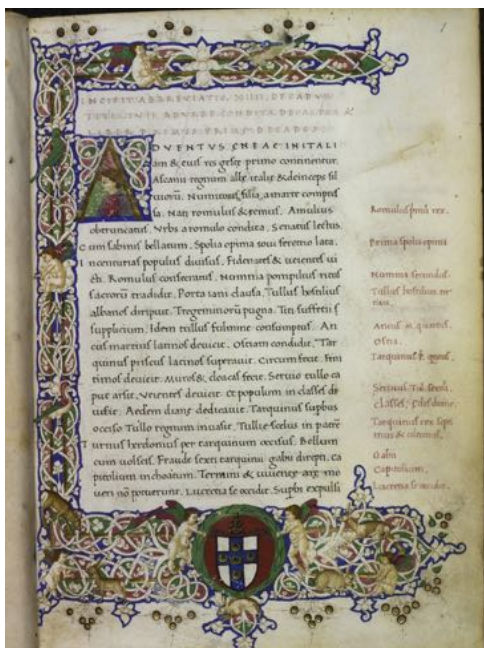 1
INCIPIT ABBREVIATIO. XIIII. DECADVM
TITI LIVII. AD VRBE CONDITA. DECADA
LIBER PRIMVS. PRIMAE DECADOS
ADVENTVS ENEAE IN ITALI
am & eius res gestę primo continentur.
Ascanii regnum albę
uiorũ. Numitoris filia, a marte compres
sa. Nati romulus & remus. Amulius
obtruncatus. Vrbs a romulo condita. Senatus lectus.
Cum sabinis bellatum. Spolia opima ioui feretrio lata.
In centurias populus diuisus. Fidenates & ueientes ui
cti. Romulus consecratus. Numma pompilius ritus
sacrorũ tradidit. Porta iani clausa. Tullus hostilius
albanos diripuit. Tregeminorũ pugna. suffetii s
supplicium. Idem tullus fulmine consumptus. An
cus martius latinos deuicit. Ostiam condidit. Tar
quinus priscus latinos supauit. Circum fecit. Fini
timos deuicit. Muros & cloacas fecit. Seruio tullo ca
put arsit. Veientes deuicit et populum in classes di
uisit. Aedem dianę dedicauit. Tarquinus supbus
occiso Tullo regnum inuasit. Tullię scelus in patrẽ
Turnus herdonius per tarquinum occisus. Bellum
cum uolscis. Fraude sexti tarquinii gabii direpti. ca
pitolium inchoatum. Termini & iuuentę arę mo
ueri nõ potuerunt. Lucretia se occidit. Supbi expulsi
Romulus primus rex.
Prima spolia opima
Numma secundus.
Tullus hostilius ter
tius.
Ancus quartus.
Ostia.
Tarquinus
Seruius Tul. sextus
classes.
Tarquinus rex septi
mus & ultimus.
Gabii
Capitolium.
Lucretia se occidit.